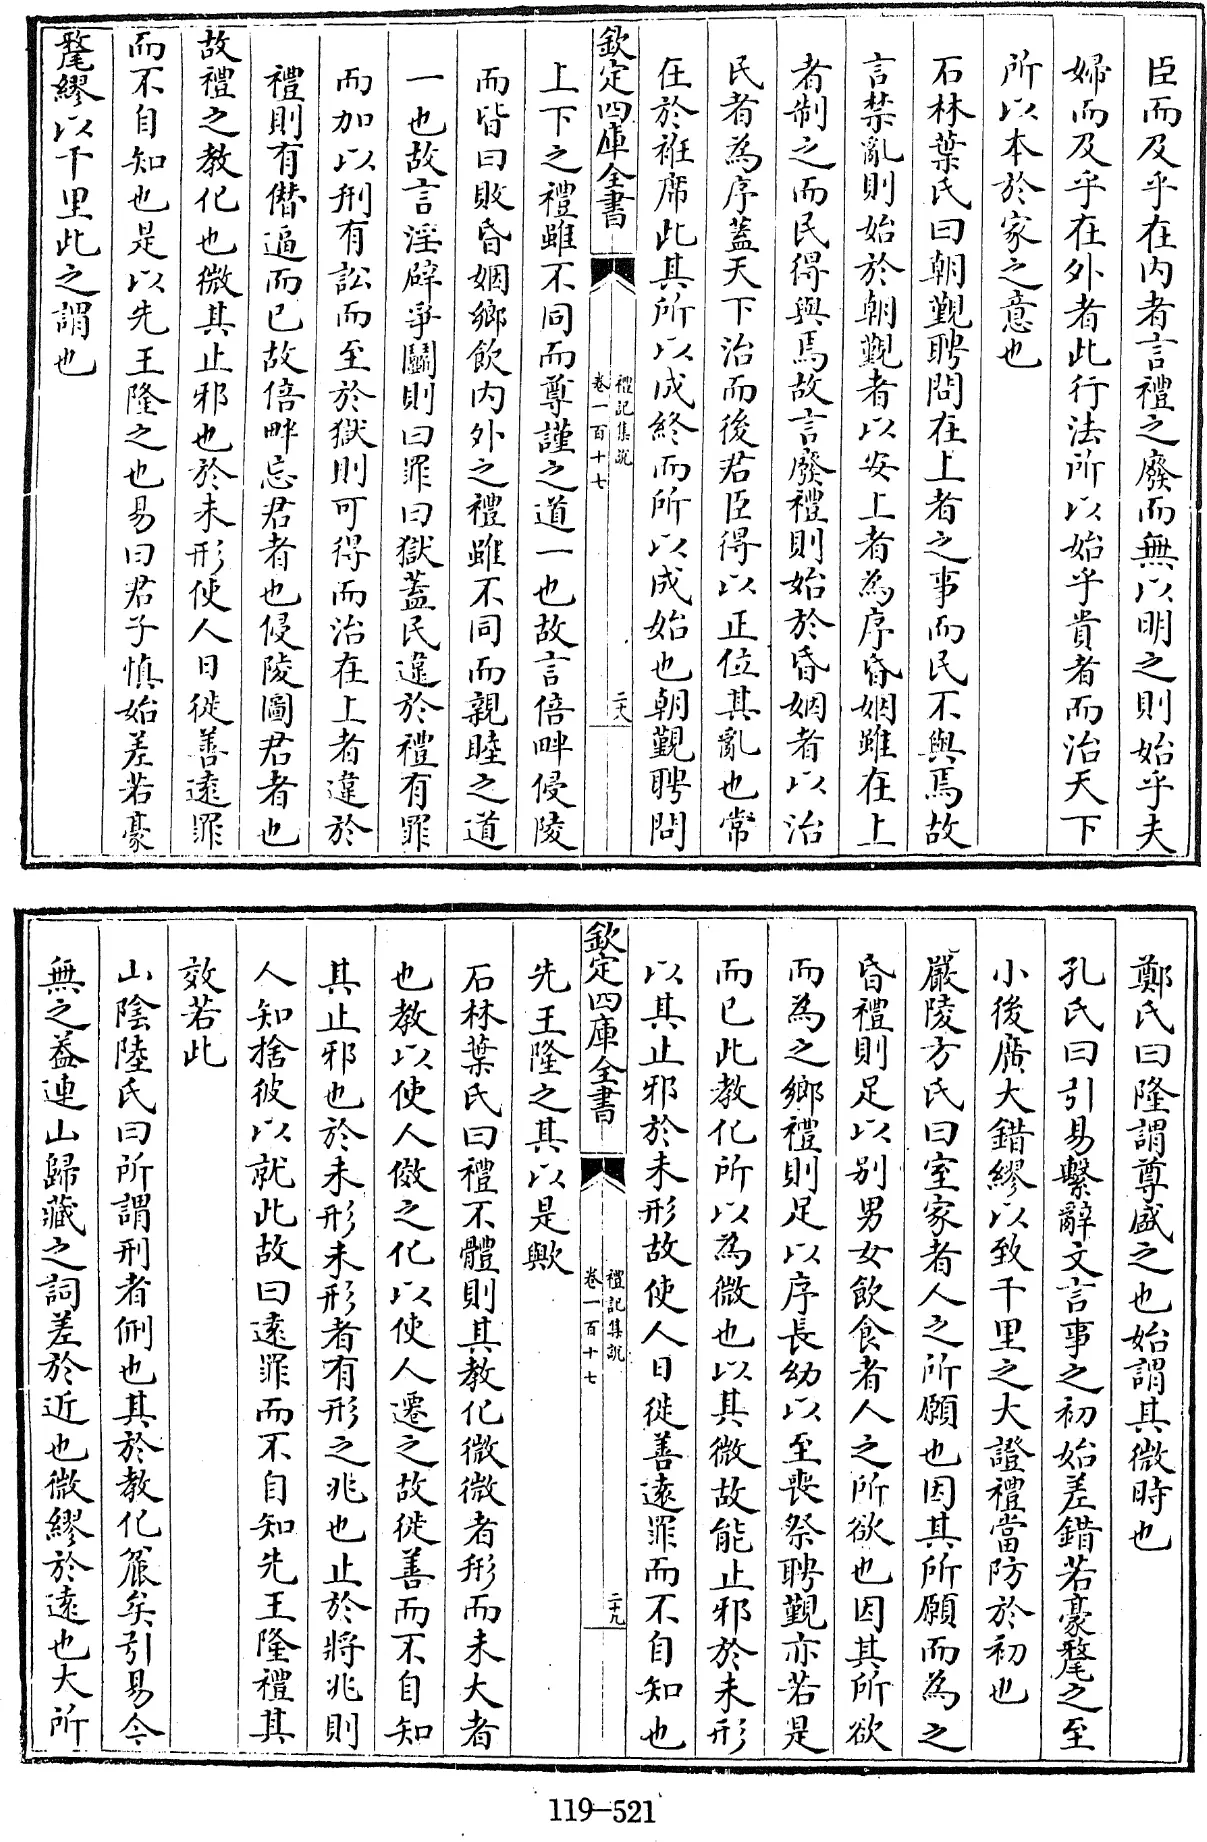 臣而及乎在内者言禮之廢而無以明之則始乎夫
婦而及乎在外者此行法所以始乎貴者而治天下
所以本於家之意也
石林葉氏曰朝覲聘問在上者之事而民不與焉故
言禁亂則始於朝覲者以安上者為序昏姻雖在上
者制之而民得與焉故言廢禮則始於昏姻者以治
民者為序蓋天下治而後君臣得以正位其亂也常
在於袵席此其所以成終而所以成始也朝覲聘問
欽定四庫全書
禮記集說
卷一百十七
二十八
上下之禮雖不同而尊謹之道一也故言倍畔侵陵
而皆曰敗昏姻鄉飲内外之禮雖不同而親睦之道
一也故言淫辟爭鬬則曰罪曰獄蓋民違於禮有罪
而加以刑有訟而至於獄則可得而治在上者違於
禮則有僭逼而已故倍畔忘君者也侵陵圖君者也
故禮之教化也微其止邪也於未形使人日徙善遠罪
而不自知也是以先王隆之也易曰君子慎始差若豪
氂繆以千里此之謂也
鄭氏曰隆謂尊盛之也始謂其微時也
孔氏曰引易繫辭文言事之初始差錯若豪氂之至
小後廣大錯繆以致千里之大證禮當防於初也
嚴陵方氏曰室家者人之所願也因其所願而為之
昏禮則足以别男女飲食者人之所欲也因其所欲
而為之鄉禮則足以序長幼以至喪祭聘覲亦若是
而已此教化所以為微也以其微故能止邪於未形
以其止邪於未形故使人日徙善遠罪而不自知也
欽定四庫全書
禮記集說
卷一百十七
二十九
先王隆之其以是歟
石林葉氏曰禮不體則其教化微微者形而未大者
也教以使人傚之化以使人遷之故徙善而不自知
其止邪也於未形未形者有形之兆也止於將兆則
人知捨彼以就此故曰遠罪而不自知先王隆禮其
效若此
山陰陸氏曰所謂刑者侀也其於教化麤矣引易今
無之蓋連山歸藏之詞差於近也微繆於遠也大所
119-521